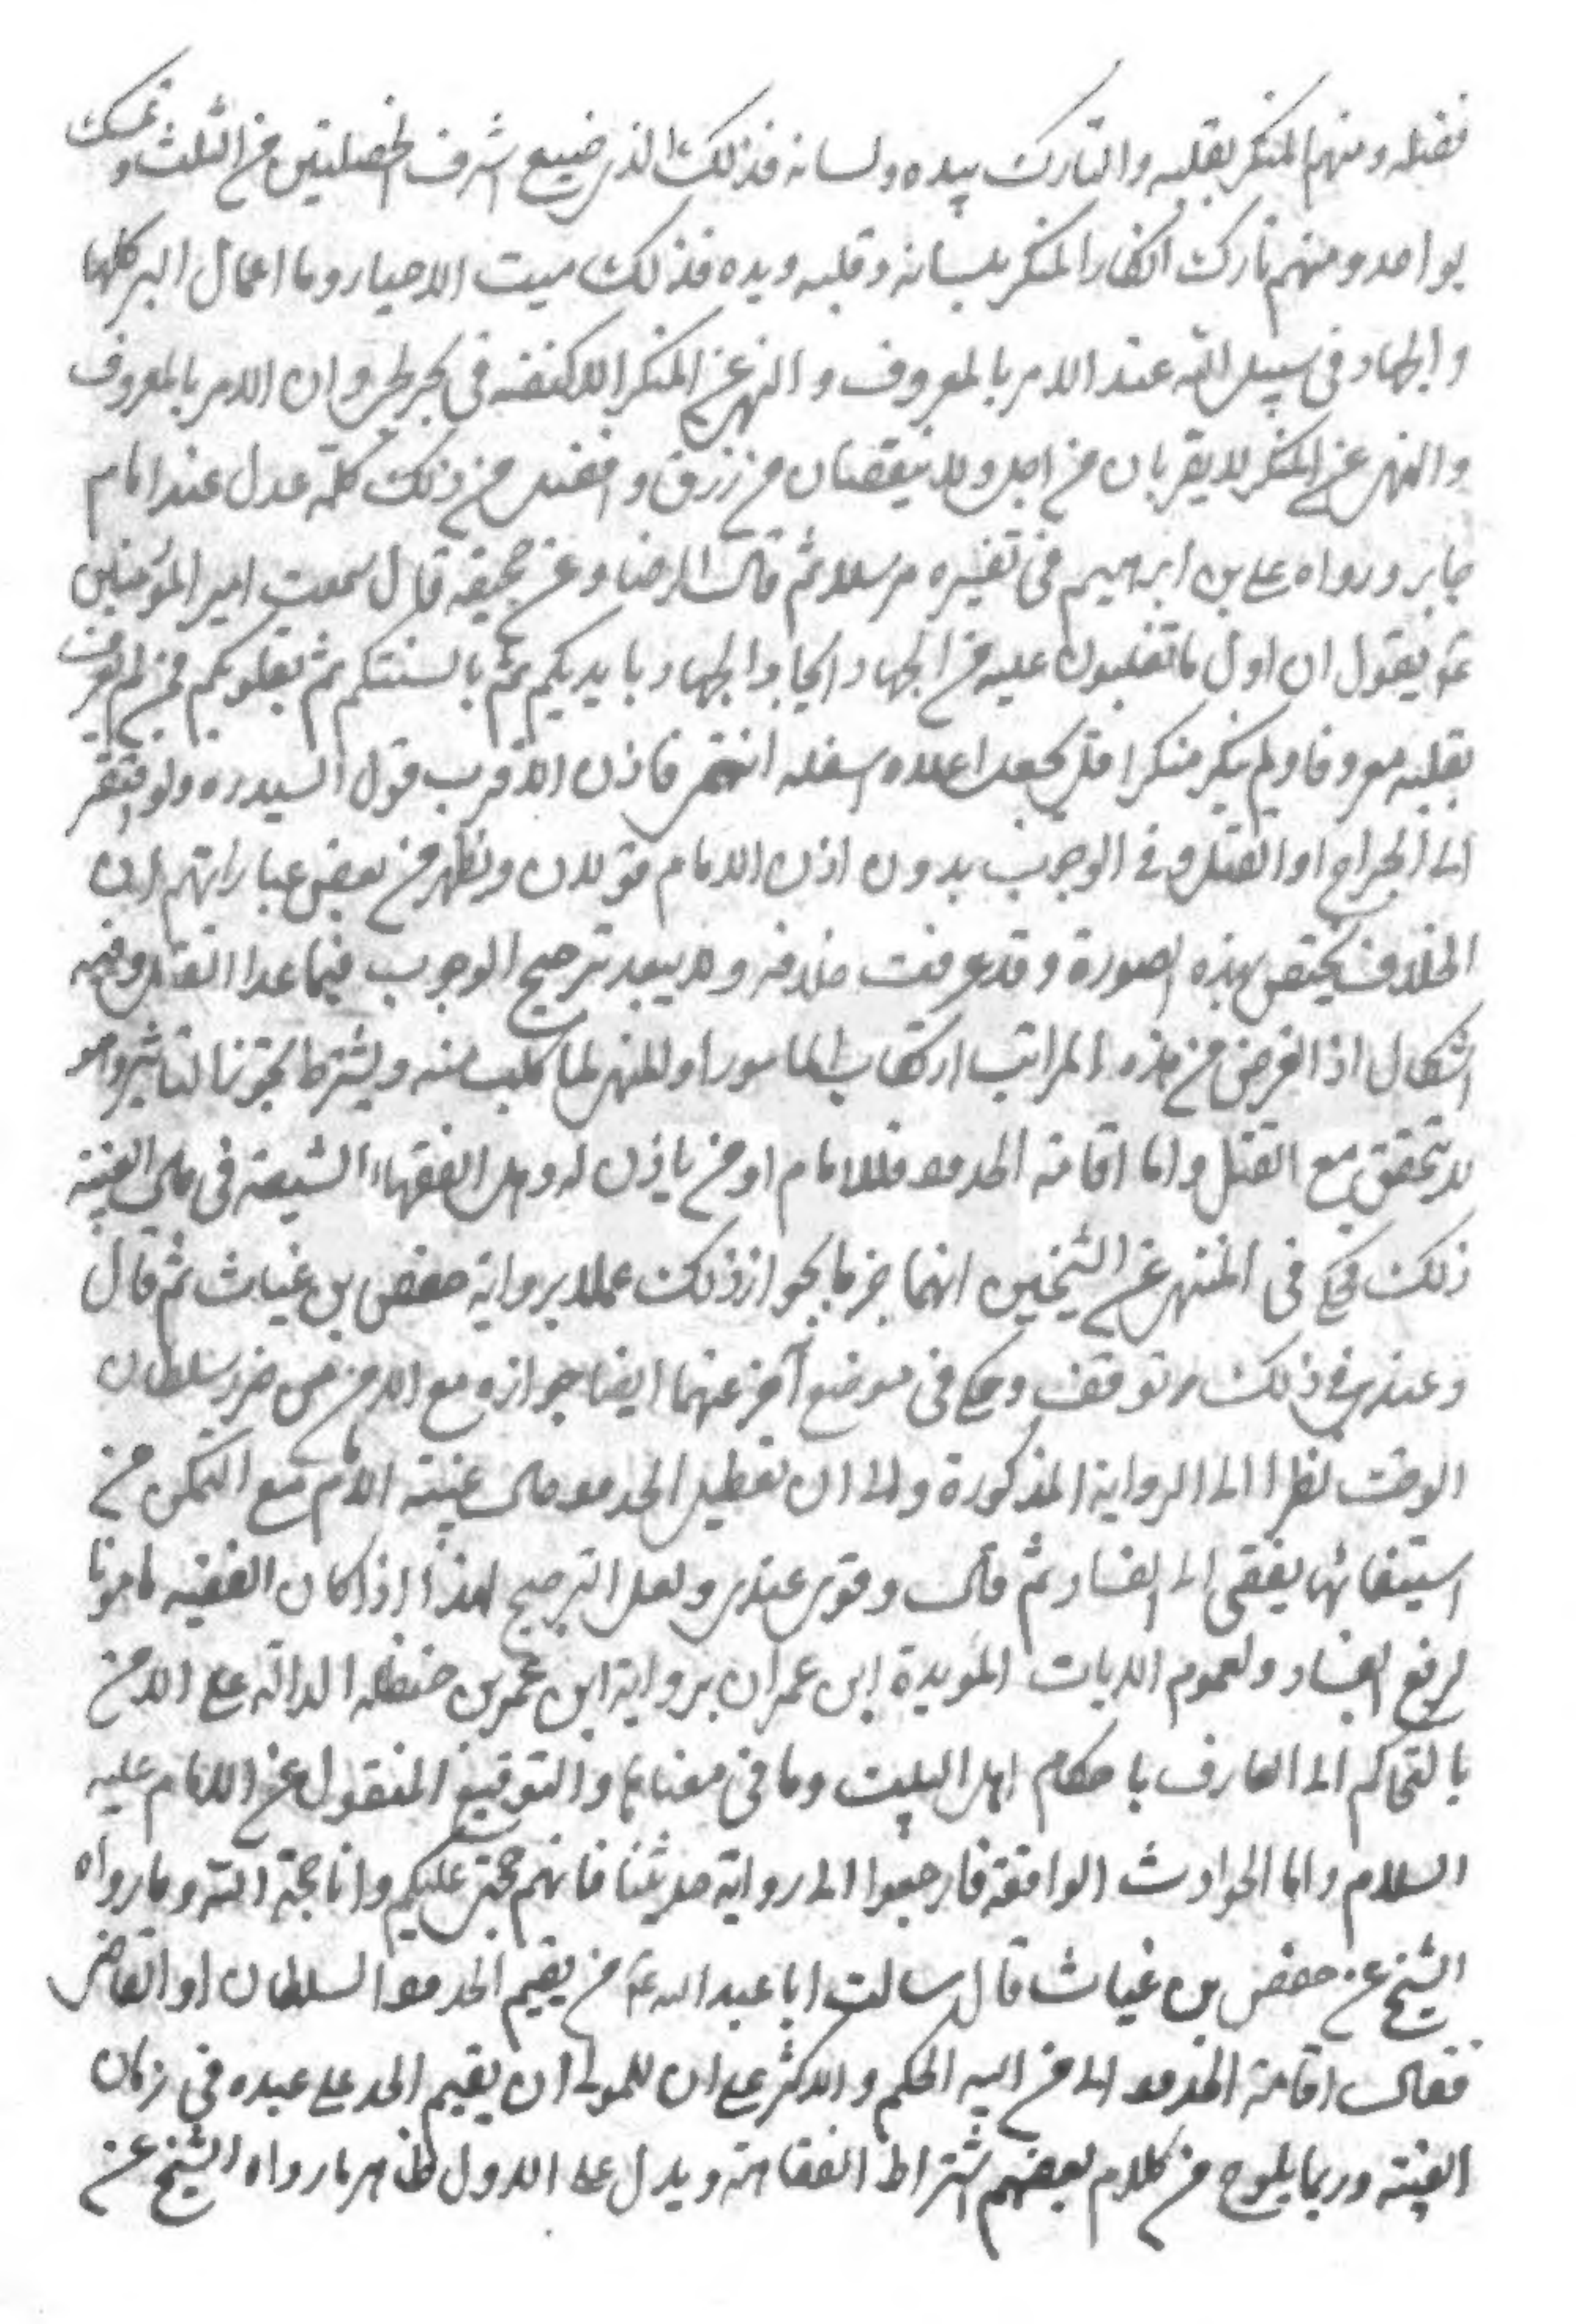 فضله ومنهم المنكر بقلبه والتارك بيده ولسانه فذلك الذي ضيع اشرف الخصلتين من الثلث وتمسك
بواحد ومنهم تارك انكار المنكر بلسانه وقلبه ويده فذلك ميت الاحياء وما اعمال البر كلها
والجهاد فى سبيل الله عند الامر بالمعروف والنهى عن المنكر الا كنفثه فى بحر لجى وان الامر بالمعروف
والنهى عن المنكر لا يقربان من اجل ولا ينقصان من رزق وافضل من ذلك كلمة عدل عند امام
جابر ورواه على بن ابرهيم فى تفسيره مرسلا ثم قال الرضا وعن جحيفه قال سمعت امير المؤمنين
ع يقول ان اول ما تغلبون عليه من الجهاد الجهاد بايديكم ثم بالسنتكم ثم بقلوبكم فمن لم يعرف
بقلبه معروفا ولم ينكر منكرا قلب فجعل اعلاه اسفله انتهى فاذن الاقرب قول السيد ره ولو افتقر
الى الجراح او القتل وفى الوجوب بدون اذن الامام قولان ويظهر من بعض عباراتهم ان
الخلاف يختص بهذه الصورة وقد عرفت خلافه ولا يبعد ترجيح الوجوب فيما عدا القتل وفيه
اشكال اذ الغرض من هذه المراتب ارتكاب المامور او المنهى لما طلب منه ويشترط تجويز التاثير وهو
لا يتحقق مع القتل واما اقامة الحدود فللامام او من ياذن له وهل لفقهاء الشيعة فى حال الغيبة
ذلك حكى فى المنتهى عن الشيخين انهما جزما بجواز ذلك عملا برواية حفص بن غياث ثم قال
وعندى فى ذلك توقف وحكى فى موضع آخر عنهما ايضا جوازه مع الامن من ضرر سلطان
الوقت نظرا الى الرواية المذكورة والى ان تعطيل الحدود حال غيبة الامام مع التمكن من
استيفائها يفضى الى الفساد ثم قال وقوى عندى ولعل الترجيح لهذا اذا كان الفقيه مامونا
لرفع الفساد ولعموم الايات المؤيدة ابن عمران برواية ابن عمر بن حنظله الدالة على الامن
بالتحاكم الى العارف باحكام اهل البيت وما فى معناها والتوقيع المنقول عن الامام عليه
السلام واما الحوادث الواقعة فارجعوا الى رواية حديثنا فانهم حجتى عليكم وانا حجة الله وما رواه
الشيخ عن حفص بن غياث قال سالت ابا عبد الله ع من يقيم الحدود السلطان او القاضى
فقال اقامة الحدود الى من اليه الحكم والاكثر على ان للمولى ان يقيم الحد على عبده فى زمان
الغيبة وربما يلوح من كلام بعضهم اشتراط الفقاهة ويدل على الاول ظاهر ما رواه الشيخ عن